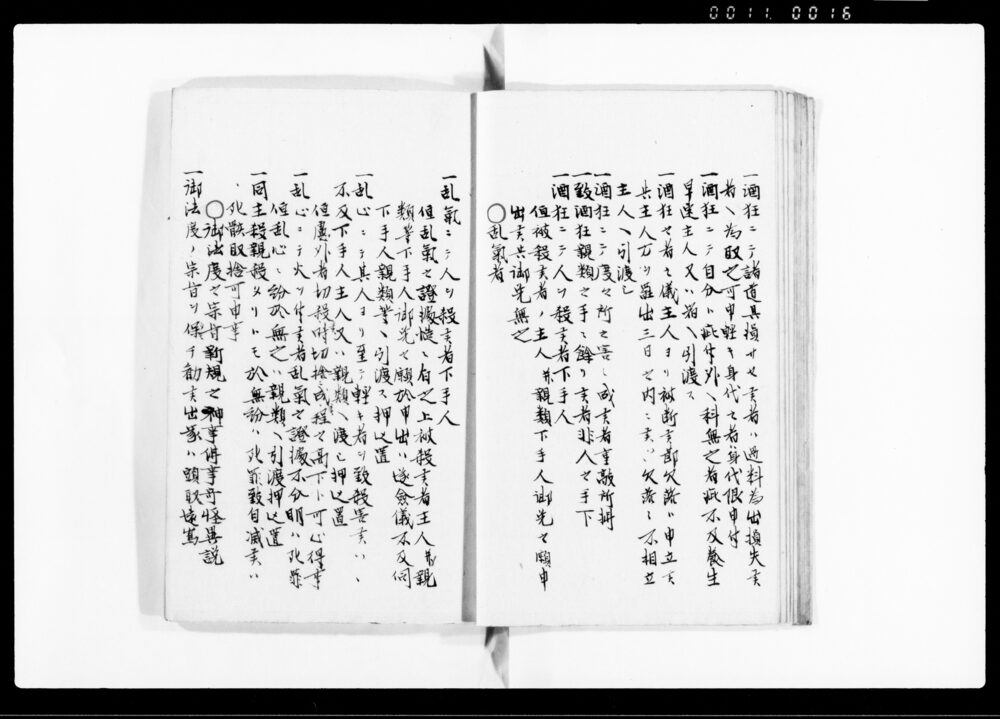 0011.0016
一酒狂ニテ諸道具損サセ候者ハ過料為出損失之
者ヘ為取之可申軽キ身代之者身代限申付
一酒狂ニテ自分ニ疵付外ニ科無之者疵不及養生
早速主人又ハ宿ヘ引渡ス
一酒狂之者之儀主人ヨリ被断候節欠落ニ申立候
共主人方ヨリ罷出三日之内ニ候ハ欠落ニ不相立
主人ヘ引渡ス
一酒狂ニテ度々所之害ニ成候者重敲所拂
一致酒狂親類之手ニ餘リ候者非人之手下
一酒狂ニテ人ヲ殺候者下手人
但被殺候者ノ主人并親類下手人御免之願申
出候共御免無之
○乱氣者
一乱氣ニテ人ヲ殺候者下手人
但乱氣之證據慥ニ有之上被殺候者主人并親
類等下手人御免之願於申出ハ遂僉儀不及伺
下手人親類等ヘ引渡ス押込置
一乱心ニテ其人ヨリ至テ軽キ者ヲ致殺害候ハヽ
不及下手人主人又ハ親類ヘ渡し押込置
但慮外者切殺時切捨ニ成程之高下ト可心得事
一乱心ニテ火ヲ付候者乱氣之證據不分明ハ死罪
但乱心ニ紛於無之ハ親類ヘ引渡押込置
一同主殺親殺タリトモ於無紛ハ死罪致自滅候ハ
死骸取捨可申事
○御法度之宗旨新規之神事佛事奇怪異説
一御法度ノ宗旨ヲ保チ勧候出家ハ頭取遠嶌